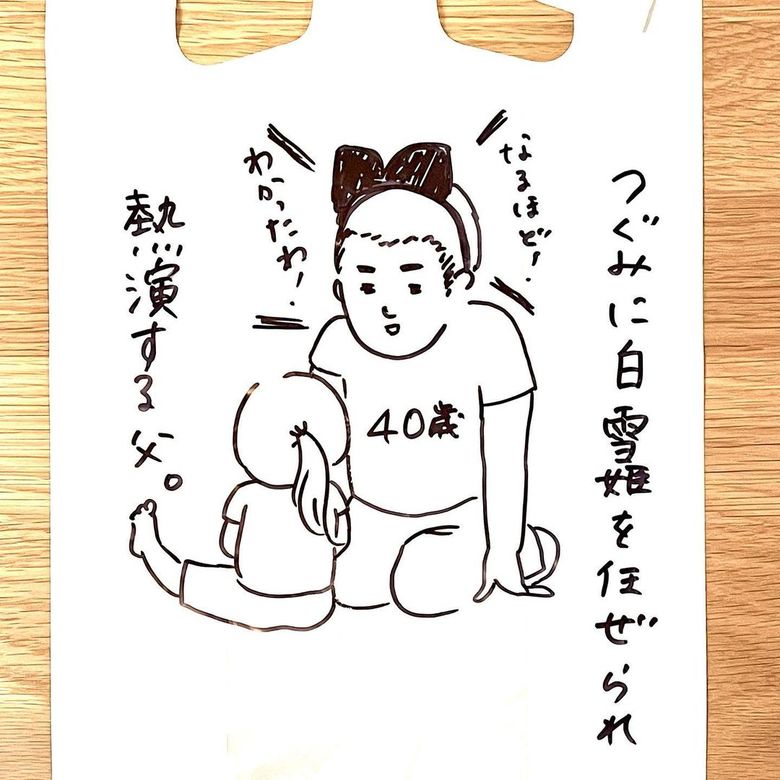 つぐみに白雪姫を任ぜられ
なるほど!
わかったわ!
40歳
熱演する父。